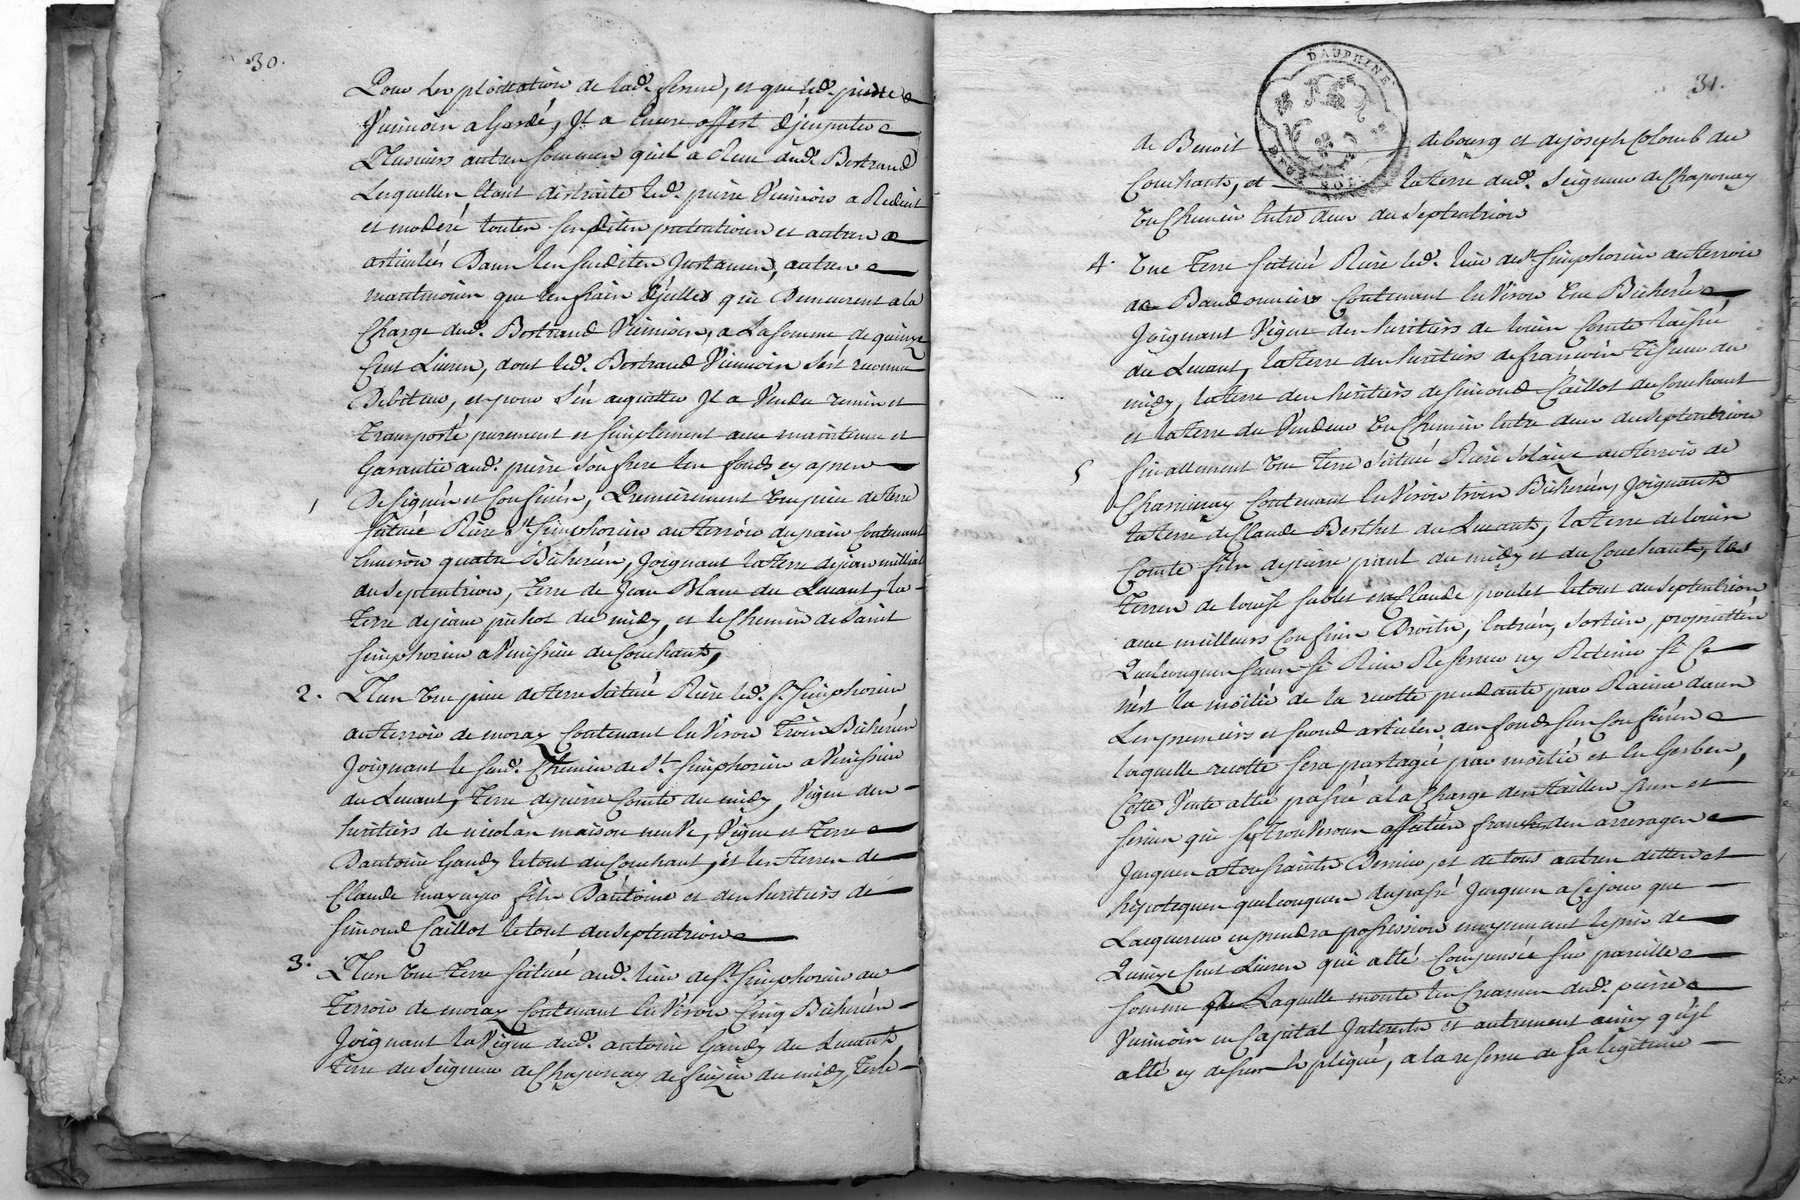 30.
Pour l'exploittation de lad.e ferme, et que led. pierre
Vuinoin a Gardé, Il a encore offert d'jmputer
Plusieurs autres sommes quil a Reeu dud. Bertrand
Lesquelles étant distraite led. pierre Vuinois a Reduit
et modéré toutes ses dites pretentions et autres
articulés Dans les susdites Jnstances, autres
neantmoins que les frais d'jcelles qui Demeurent a la
Charge dud. Bertrand Vuinoin, a La somme de quinze
Cent Livres, dont led. Bertrand Vuinoin s'est reconnu
Debiteur, et pour s'en aquitter Jl a Vendu remis et
transporté purement et simplement avec maintenue et
Garantie aud. pierre son frere les fonds cy apres
1 Designés et Confinés, Premierement Une piece de terre
situeé Riere St. Simphorien au terroir du pain Contenant
Environ quatre Bicherées, Joignant la terre de jean millial
du septentrion, terre de Jean Blanc du Levant, la
terre de jean pichot du midy, et le Chemin de Saint
simphorien a Venissieu du Couchant,
2. Plus Une piece de terre Situeé Riere led. St. Simphorien
au terroir de moray Contenant En Viron Trois Bicherées
Joignant le susd. Chemin de St. Simphorien a Venissieu
du Levant, terre de pierre Comte du midy, Vigne des
heritiers de nicolas maison neuve, Vigne et terre
D'antoine Gandy le tout du Couchant, et les terres de
Claude mazuyer fils D'antoine et des heritiers de
simond Caillot le tout du septentrion
3. Plus Une terre situeé aud. lieu de St. simphorien au
terroir de moray Contenant En Viron Cinq Bicherées
Joignant la Vigne dud. antoine Gandy du Levant,
terre du seigneur de Chaponay de feizin du midy, terre
DAUPHINE
SOL
31.
de Benoit debourg et de joseph Colomb du
Couchant, et la terre dud. seigneur de Chaponay
Un Chemin Entre deux du septentrion
4. Une terre situeé Riere led. lieu de St. simphorien au terroir
de Baudonnier Contenant En Viron Une Bicherée,
Joignant Vigne des heritiers de louis Comte laisné
du Levant, la terre des heritiers de francois tisseur du
midy, la terre des heritiers de simond Caillot du Couchant
et la terre du Vendeur Un Chemin Entre deux du septentrion
5 finallement Une terre située Riere solaize au terroir de
Charniray Contenant En Viron trois Bicherées, Joignant
la terre de Claude Berthet du Levant, la terre de louis
Comte fils de pierre paul du midy et du Couchant, les
terres de louise sablet et Claude poulet le tout du septentrion
avec meilleurs Confins Droits, Entrées, sorties, propriettés
Quelconques sans s'en Rien Reserver ny Retenir si Ce
n'est la moitié de la recolte pendante par Racine dans
Les premiers et second articles des fonds sus Confinés
laquelle recolte sera partagée par moitié et En Gerbes,
Cette Vente a été passée a la Charge des tailles Cens et
servis qui se trouVeront affectés francs des arrerages
Jusques a tous saints Dernier, et de tous autres dettes et
hipoteques quelconques du passé Jusques a Ce jour que
Lacquereur en prendra possession moyennant le prix de
Quinze Cent Livres qui a été Compensée sur pareille
somme a Laquelle monte les Creances dud. pierre
Vuinoin en Capital Jnterests et autrement ainsy qu'jl
a été cy dessus Expliqué, a la reserve de sa legitime